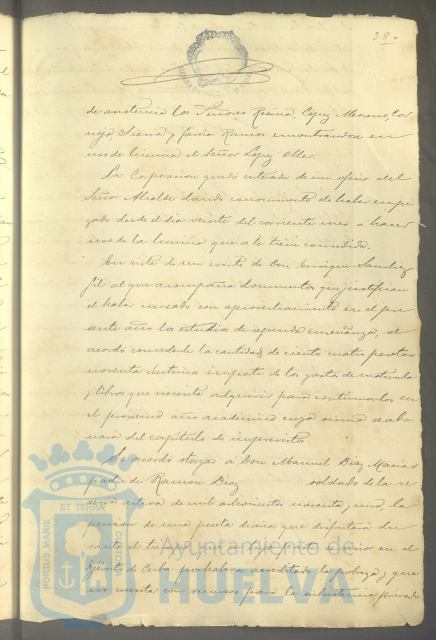 28.
de asistencia los Señores Resina, Lopez Moreno, Cor-
nejo Sierra y Garcia Ramos encontrandose en
uso de licencia el Señor Lopez Oller.
La Corporacion quedó enterada de un oficio del
Señor Alcalde dando conocimiento de haber empe-
zado desde el dia veinte del corriente mes a hacer
uso de la licencia que se le tiene concedida.
En vista de un escrito de Don Enrique Sanchez
fil al que acompaña documentos que justifican
el haber cursado con aprovechamiento en el pre-
sente año los estudios de segunda enseñanza, se
acordó concederle la cantidad de ciento cuatro pesetas
noventa centimos importe de los gastos de matricula
y libros que necesita adquirir para continuarlos en
el proximo año academico cuya suma se abo-
nará del capitulo de imprevistos.
Se acordó otorgar á Don Manuel Diaz Macias
padre de Ramon Diaz soldado de la re-
serva activa de mil ochocientos noventa y uno, la
pension de una peseta diaria que disfrutará du-
rante el tiempo que su hijo preste servicio en el
Ejército de Cuba por haber acreditado la pobreza y que
no cuenta con recursos para la subsistencia
PORTUS MARIS ET TERRÆ CUSTODIA
Ayuntamiento de
HUELVA